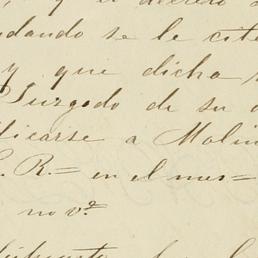 y el decreto
dando se le cite
y que dicha
Juzgado de su
ticarse a Molin
C. R.= en el mes=
no v.ª